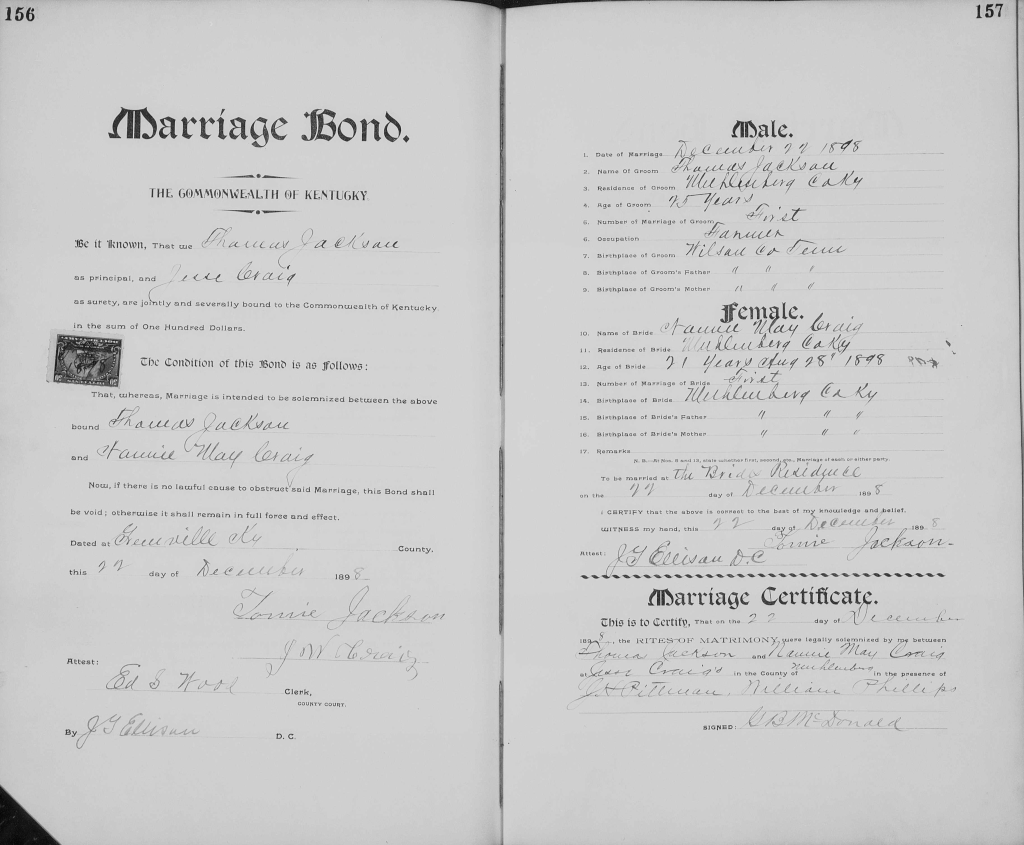 156
Marriage Bond.
THE COMMONWEALTH OF KENTUCKY
Be it Known, That we Thomas Jackson
as principal, and Jesse Craig
as surety, are jointly and severally bound to the Commonwealth of Kentucky
in the sum of One Hundred Dollars.
The Condition of this Bond is as Follows:
That, whereas, Marriage is intended to be solemnized between the above
bound Thomas Jackson
and Nannie May Craig
Now, if there is no lawful cause to obstruct said Marriage, this Bond shall
be void; otherwise it shall remain in full force and effect.
Dated at Greenville Ky County.
this 22 day of December 1898
Tomie Jackson
J W
Attest:
Ed S Wood Clerk,
COUNTY COURT.
By J G Ellison D. C.
157
Male.
1. Date of Marriage December 22 1898
2. Name Of Groom Thomas Jackson
3. Residence of Groom Muhlenberg Co Ky
4. Age of Groom 25 Years
5. Number of Marriage of Groom First
6. Occupation Farmer
7. Birthplace of Groom Wilson Co Tenn
8. Birthplace of Groom's Father " " "
9. Birthplace of Groom's Mother " " "
Female.
10. Name of Bride Nannie May Craig
11. Residence of Bride Muhlenberg Co Ky
12. Age of Bride 21 Years Aug 28" 1898
13. Number of Marriage of Bride First
14. Birthplace of Bride Muhlenberg Co Ky
15. Birthplace of Bride's Father " " "
16. Birthplace of Bride's Mother " " "
17. Remarks
N. B.—At Nos. 5 and 13, state whether first, second, etc., Marriage of each or either party.
To be married at the Brides Residence
on the 22 day of December 1898
I CERTIFY that the above is correct to the best of my knowledge and belief.
WITNESS my hand, this 22 day of December 1898
Tomie Jackson
Attest: J G Ellison D.C
Marriage Certificate.
This is to Certify, That on the 22 day of December
1898, the RITES OF MATRIMONY were legally solemnized by me between
Thomas Jackson and Nannie May Craig
at Jesse Craig's in the County of Muhlenberg in the presence of
J H Pittman, William Phillips
SIGNED: G B McDonald